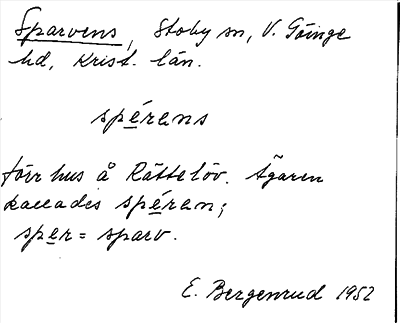 Sparvens, Stoby sn, V. Göinge
hd, Krist. län.
spérens
förr hus å Rättelöv. Ägaren
kallades spéren;
sper = sparv.
E. Bergenrud 1952